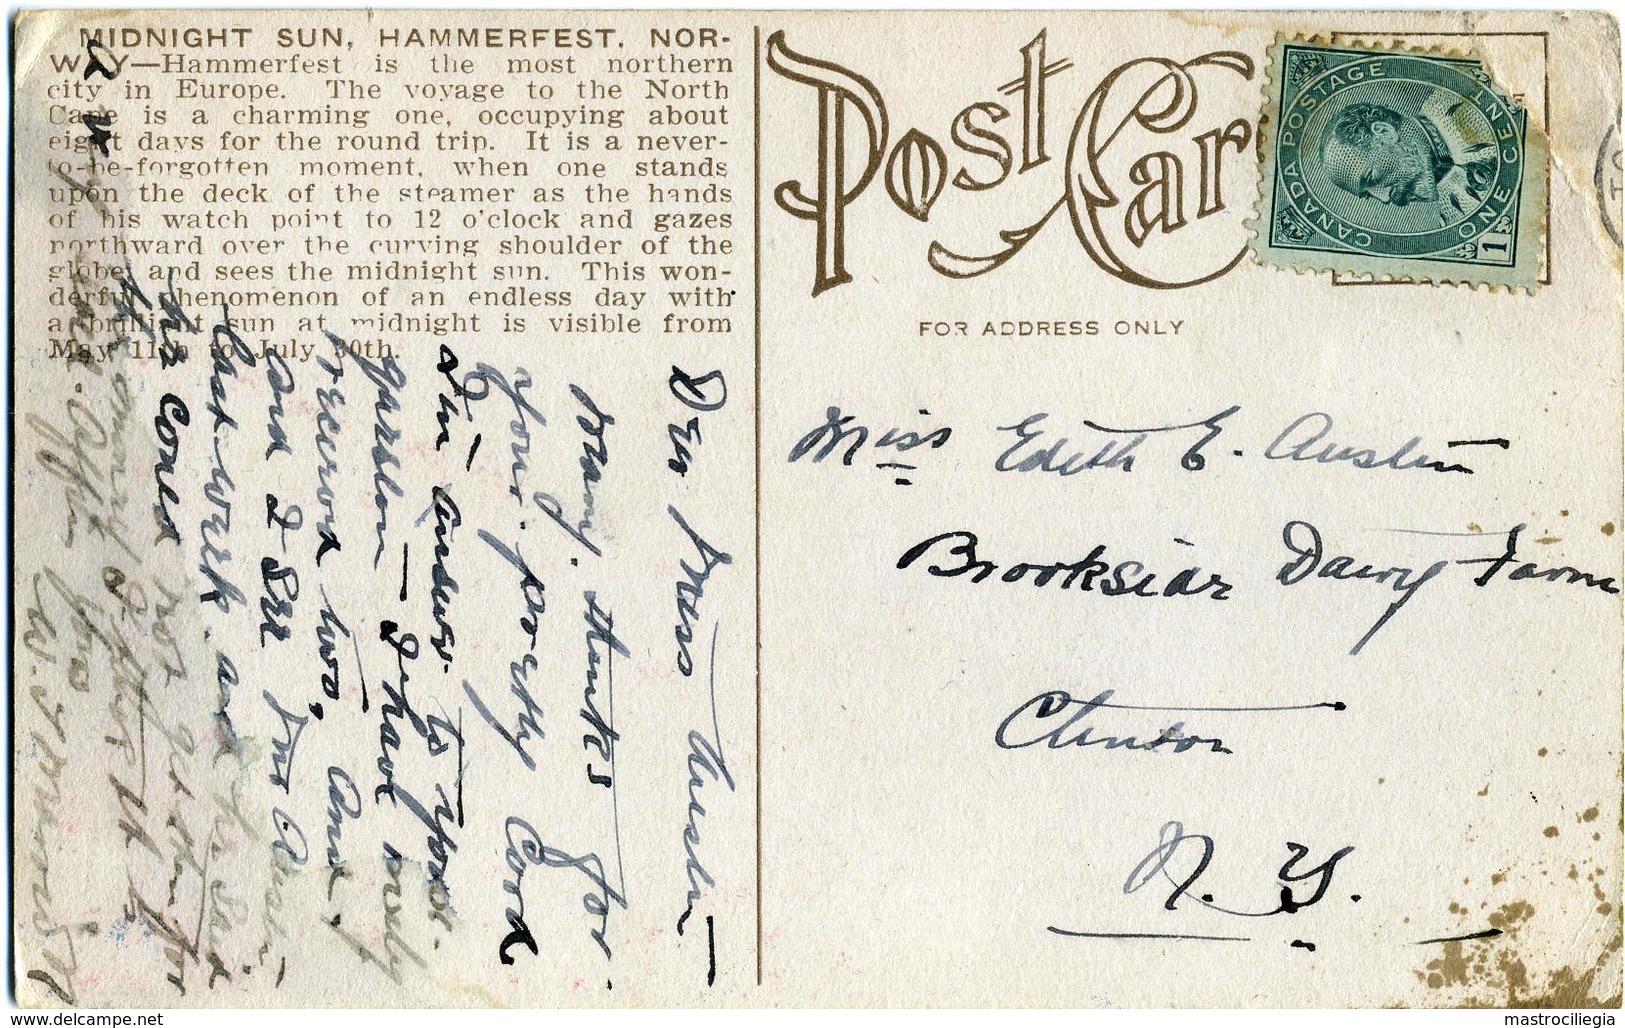 MIDNIGHT SUN, HAMMERFEST, NOR-
WAY—Hammerfest is the most northern
city in Europe. The voyage to the North
Cape is a charming one, occupying about
eight days for the round trip. It is a never-
to-be-forgotten moment, when one stands
upon the deck of the steamer as the hands
of his watch point to 12 o'clock and gazes
northward over the curving shoulder of the
globe, and sees the midnight sun. This won-
derful phenomenon of an endless day with
a brilliant sun at midnight is visible from
May 11th to July 30th.
Post Car
FOR ADDRESS ONLY
CANADA POSTAGE
ONE CENT
1
Miss Edith E. Austin
Brookside Dairy Farm
Clinton
N. Y.
Dear Miss Austin
Many thanks for
your pretty Card
In answer to your
question — I have only
received two, and
and I see
last week and he said
he could not get them for
mastrociliegia
delcampe.net